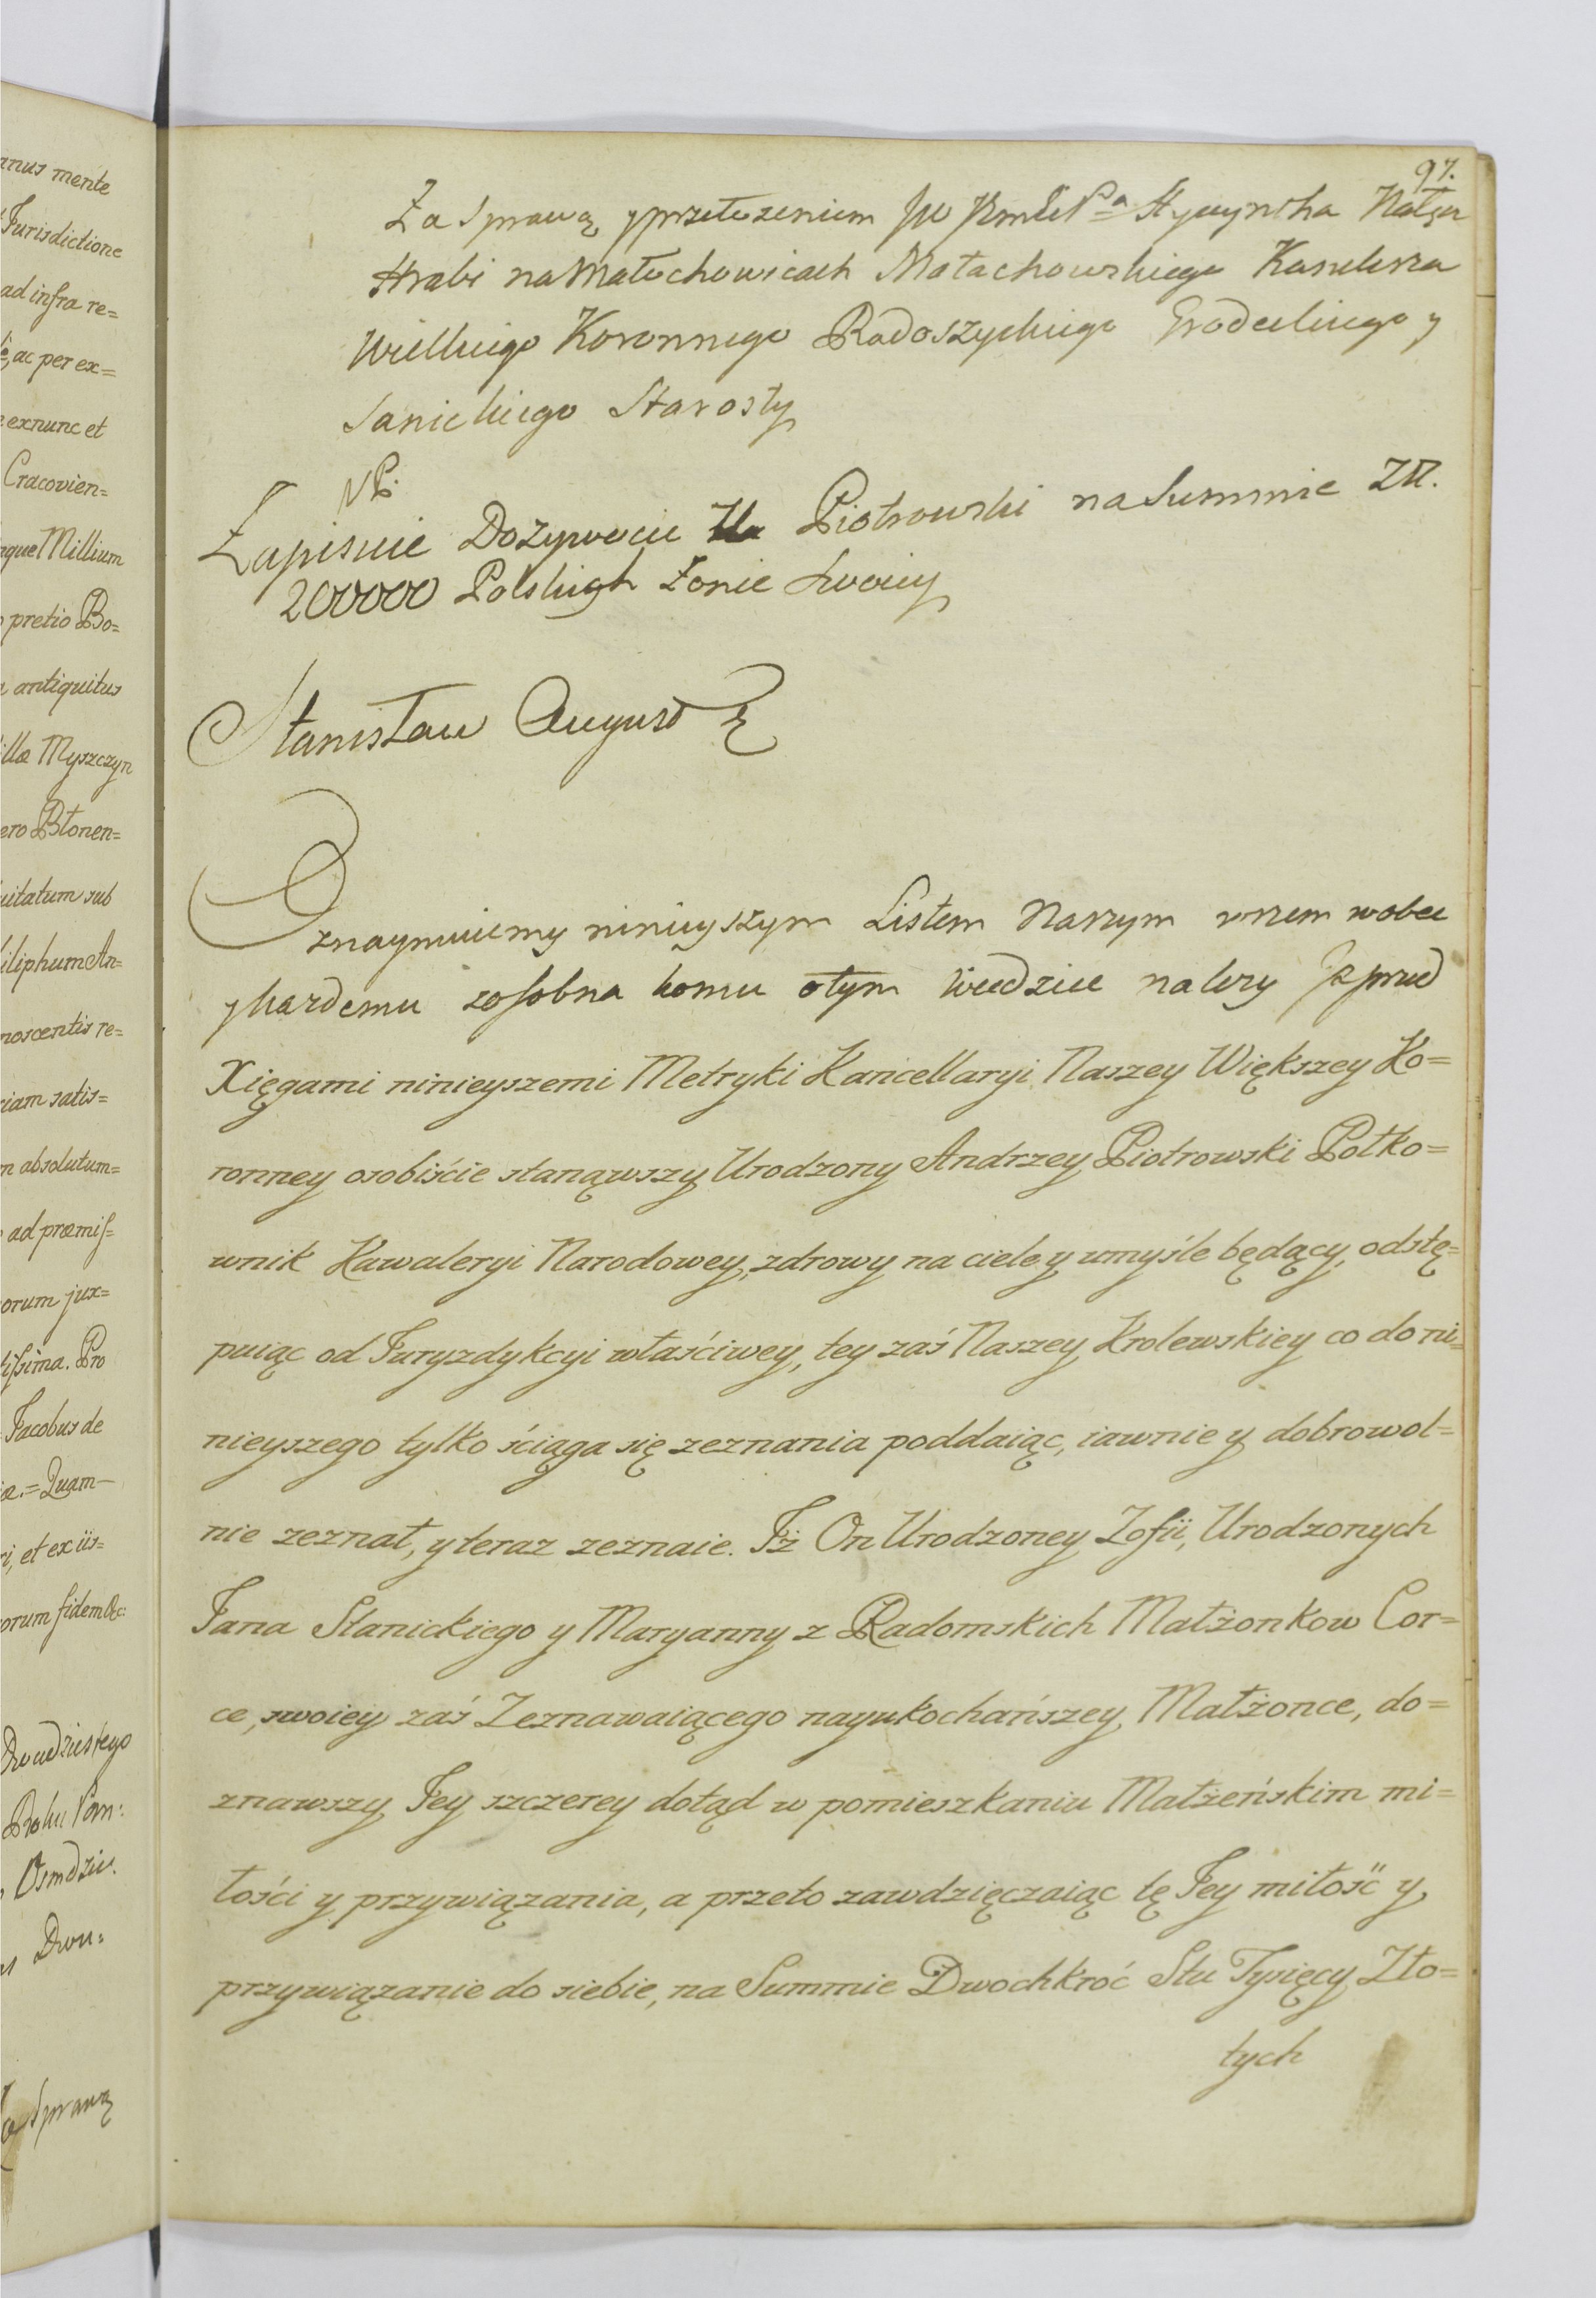 anus mente
Jurisdictione
ad infra re=
ac per ex=
exnunc et
Cracovien=
que Millium
pretio Bo=
antiquitus
illæ Myszczyn
ero Błonen=
uitatum sub
iliphum An=
noscentis re=
iam satis=
m absolutum=
ad præmis=
orum jux=
issima. Pro
Jacobus de
æ.= Quam—
ri, et ex iis=
orum fidem &c:
Dwudziestego
Roku Pan:
Osmdzie.
Dwu=
Sprawą
97.
Za Sprawą y przełożeniem JW Hyacyntha Nałęcz
Hrabi na Małochowicach Małachowskiego Kanclerza
Wielkiego Koronnego Radoszyckiego Grodeckiego y
Sanickiego Starosty
Zapisuie Dożywocie Ur. Piotrowski na Summie Złł.
200000 Polskich Żonie Swoiey
Stanisław August
Oznaymuiemy ninieyszym Listem Naszym wszem wobec
y każdemu zosobna komu o tym wiedziec nalezy Jz przed
Xięgami ninieyszemi Metryki Kancellaryi Naszey Większey Ko=
ronney osobiście stanąwszy Urodzony Andrzey Piotrowski Połko=
wnik Kawaleryi Narodowey, zdrowy na ciele y umyśle będący, odstę=
puiąc od Juryzdykcyi właściwey, tey zaś Naszey Krolewskiey co do ni=
nieyszego tylko ściąga się zeznania poddaiąc, iawnie y dobrowol=
nie zeznał, y teraz zeznaie. Jż On Urodzoney Zofii, Urodzonych
Jana Stanickiego y Maryanny z Radomskich Małżonkow Cor=
ce, swoiey zaś Zeznawaiącego nayukochańszey Małżonce, do=
znawszy Jey szczerey dotąd w pomieszkaniu Małżeńskim mi=
łości y przywiązania, a przeto zawdzięczaiąc tę Jey miłość y
przywiązanie do siebie, na Summie Dwochkroć Stu Tysięcy Zło=
tych